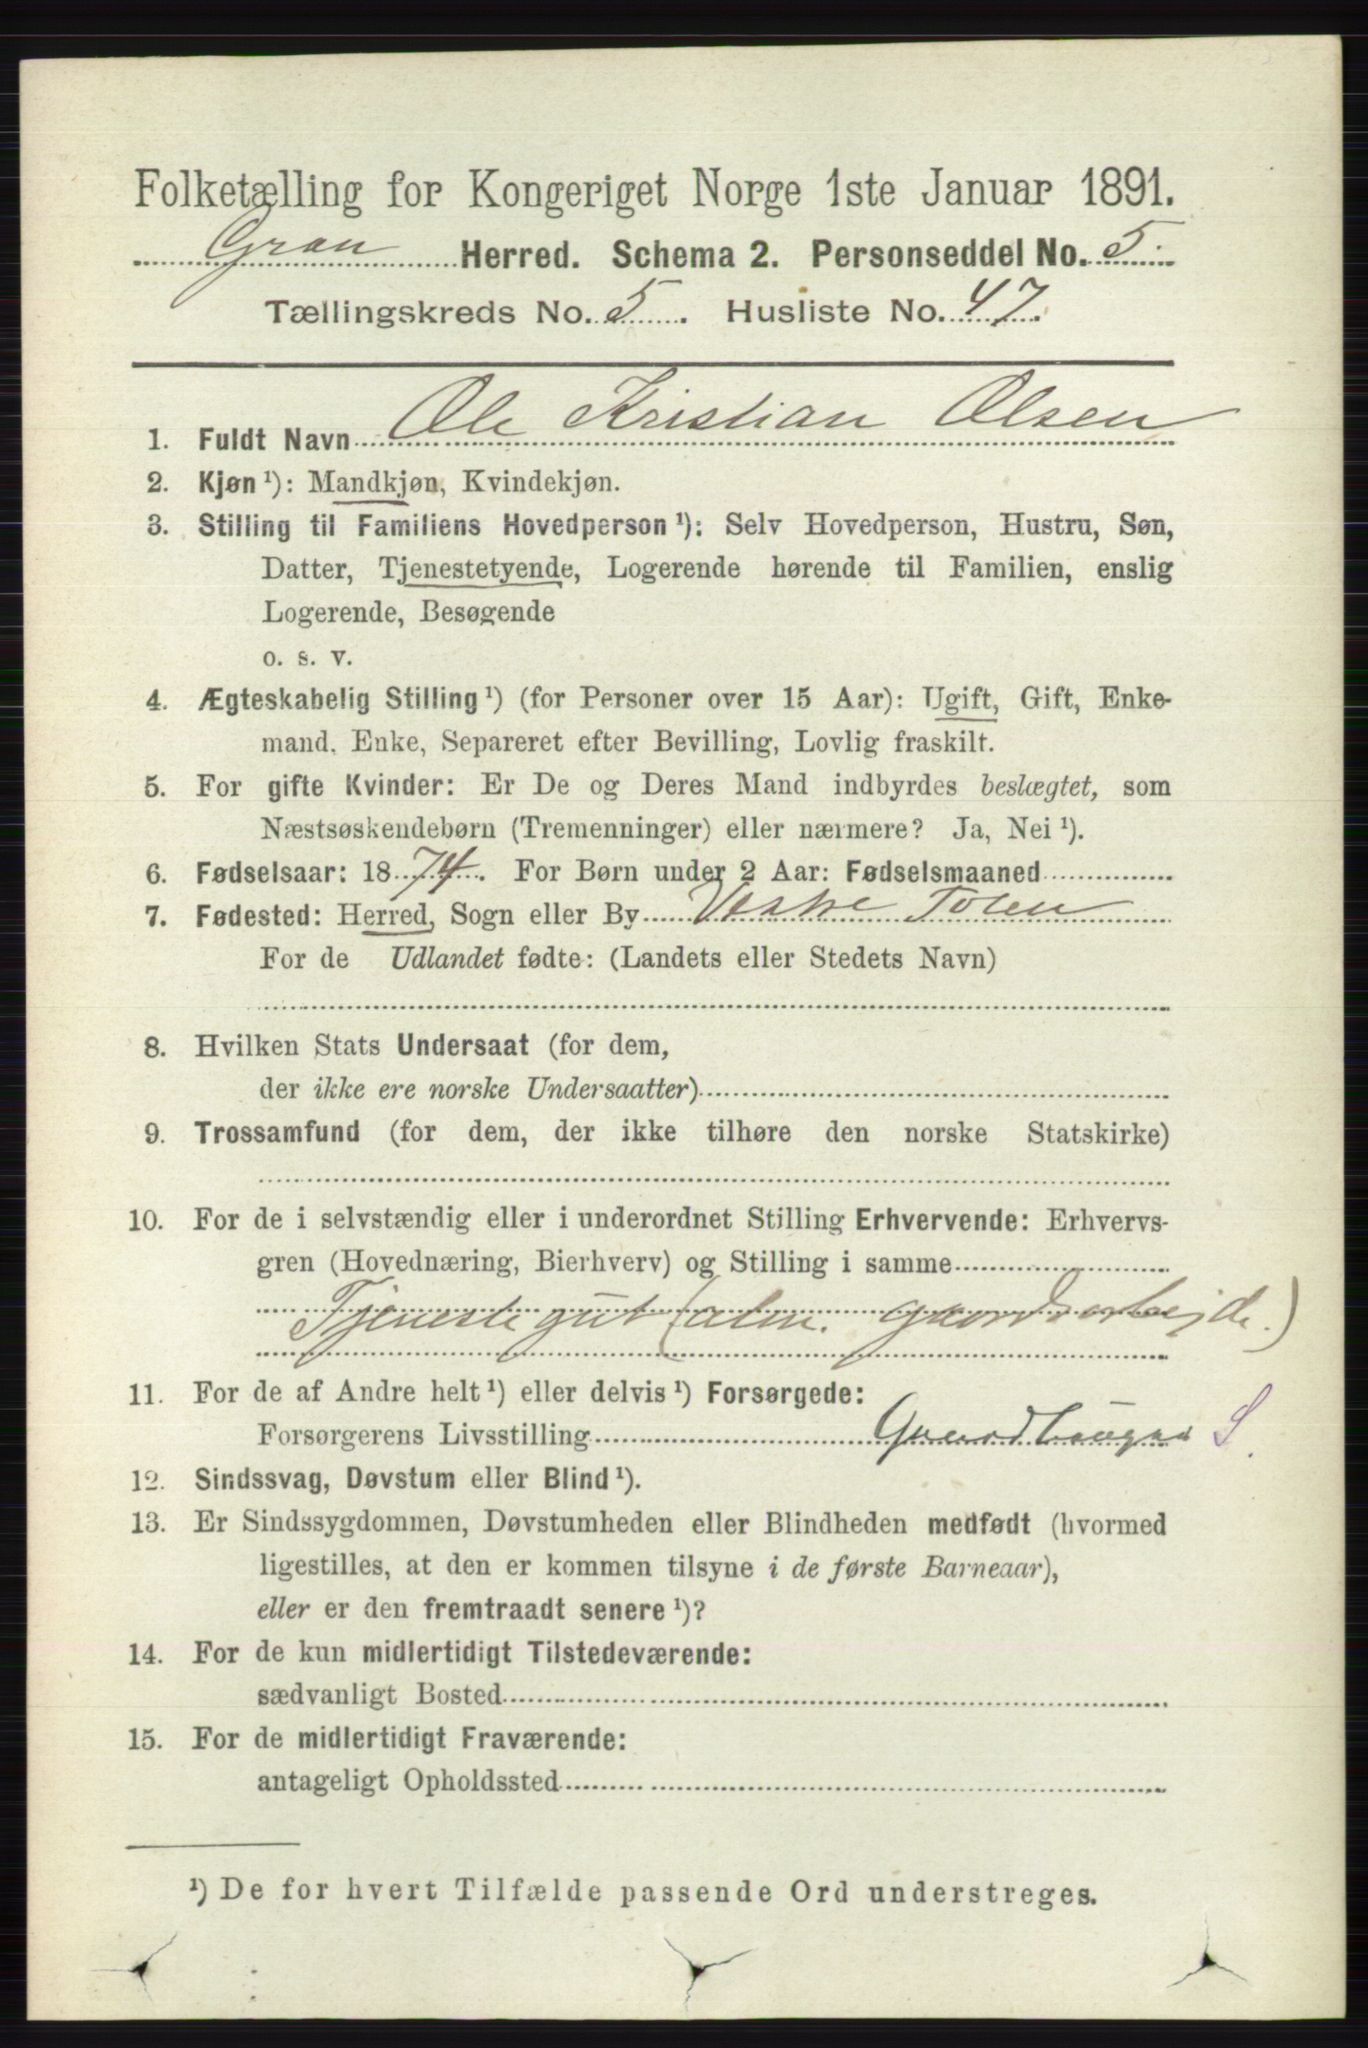 Folketælling for Kongeriget Norge 1ste Januar 1891.
Gran Herred. Schema 2. Personseddel No. 5.
Tællingskreds No. 5. Husliste No. 47.
1. Fuldt Navn Ole Kristian Olsen
2. Kjøn ¹): Mandkjøn, Kvindekjøn.
3. Stilling til Familiens Hovedperson ¹): Selv Hovedperson, Hustru, Søn,
Datter, Tjenestetyende, Logerende hørende til Familien, enslig
Logerende, Besøgende
o. s. v.
4. Ægteskabelig Stilling ¹) (for Personer over 15 Aar): Ugift, Gift, Enke-
mand, Enke, Separeret efter Bevilling, Lovlig fraskilt.
5. For gifte Kvinder: Er De og Deres Mand indbyrdes beslægtet, som
Næstsøskendebørn (Tremenninger) eller nærmere? Ja, Nei ¹).
6. Fødselsaar: 1874. For Børn under 2 Aar: Fødselsmaaned
7. Fødested: Herred, Sogn eller By Vestre Toten
For de Udlandet fødte: (Landets eller Stedets Navn)
8. Hvilken Stats Undersaat (for dem,
der ikke ere norske Undersaatter)
9. Trossamfund (for dem, der ikke tilhøre den norske Statskirke)
10. For de i selvstændig eller i underordnet Stilling Erhvervende: Erhvervs-
gren (Hovednæring, Bierhverv) og Stilling i samme
Tjenestegut (alm. gaardsarbejde.)
11. For de af Andre helt ¹) eller delvis ¹) Forsørgede:
Forsørgerens Livsstilling S.
12. Sindssvag, Døvstum eller Blind ¹).
13. Er Sindssygdommen, Døvstumheden eller Blindheden medfødt (hvormed
ligestilles, at den er kommen tilsyne i de første Barneaar),
eller er den fremtraadt senere ¹)?
14. For de kun midlertidigt Tilstedeværende:
sædvanligt Bosted
15. For de midlertidigt Fraværende:
antageligt Opholdssted
¹) De for hvert Tilfælde passende Ord understreges.